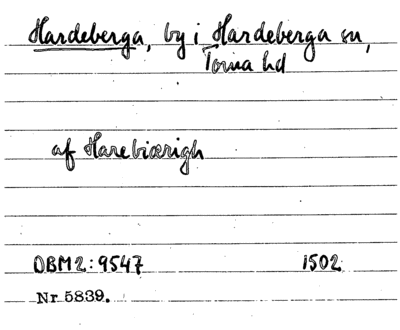 Hardeberga, by i Hardeberga sn,
Torna hd
af Harebiærigh
DBM2:9547 1502
Nr 5839.